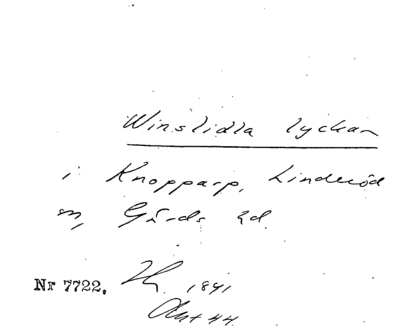 Winslidla lyckan
i Knopparp, Linderöd
sn, Gärds hd.
Nr 7722. 1841
Akt 44.